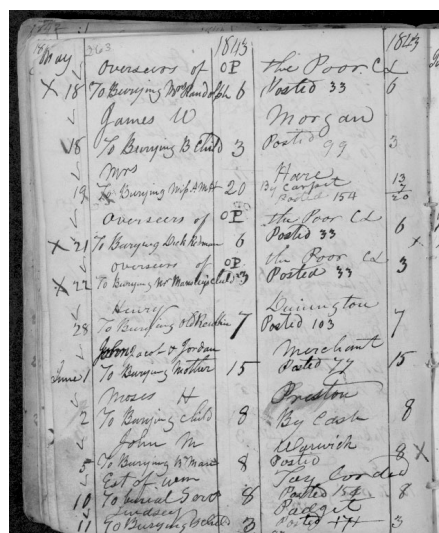 263 1843 1843
May Overseers of OP the Poor Cd
X 18 To Burying Mrs Randolph 6 Posted 33 6
James W Morgan
18 To Burying B Child 3 Posted 99 3
Mrs Hare 13
19 To Burying 20 By Carpet 7
Posted 154 20
Overseers of OP the Poor Cd
X 21 To Burying Dick 6 Posted 33 6
Overseers of OP the Poor Cd
X 22 To Burying Mr child 3 Posted 33 3
Henry
28 To Burying Old 7 Posted 103 7
Jacob & Jordan Merchant
June 1 To Burying Mother 15 Posted 77 15
Moses H Preston
2 To Burying child 8 By Cash 8
John M Warwick
5 To Burying 8 Posted 8 X
Est of
10 To 8 Posted 154 8
Lindsey Padget
11 To Burying child 3 Posted 171 3